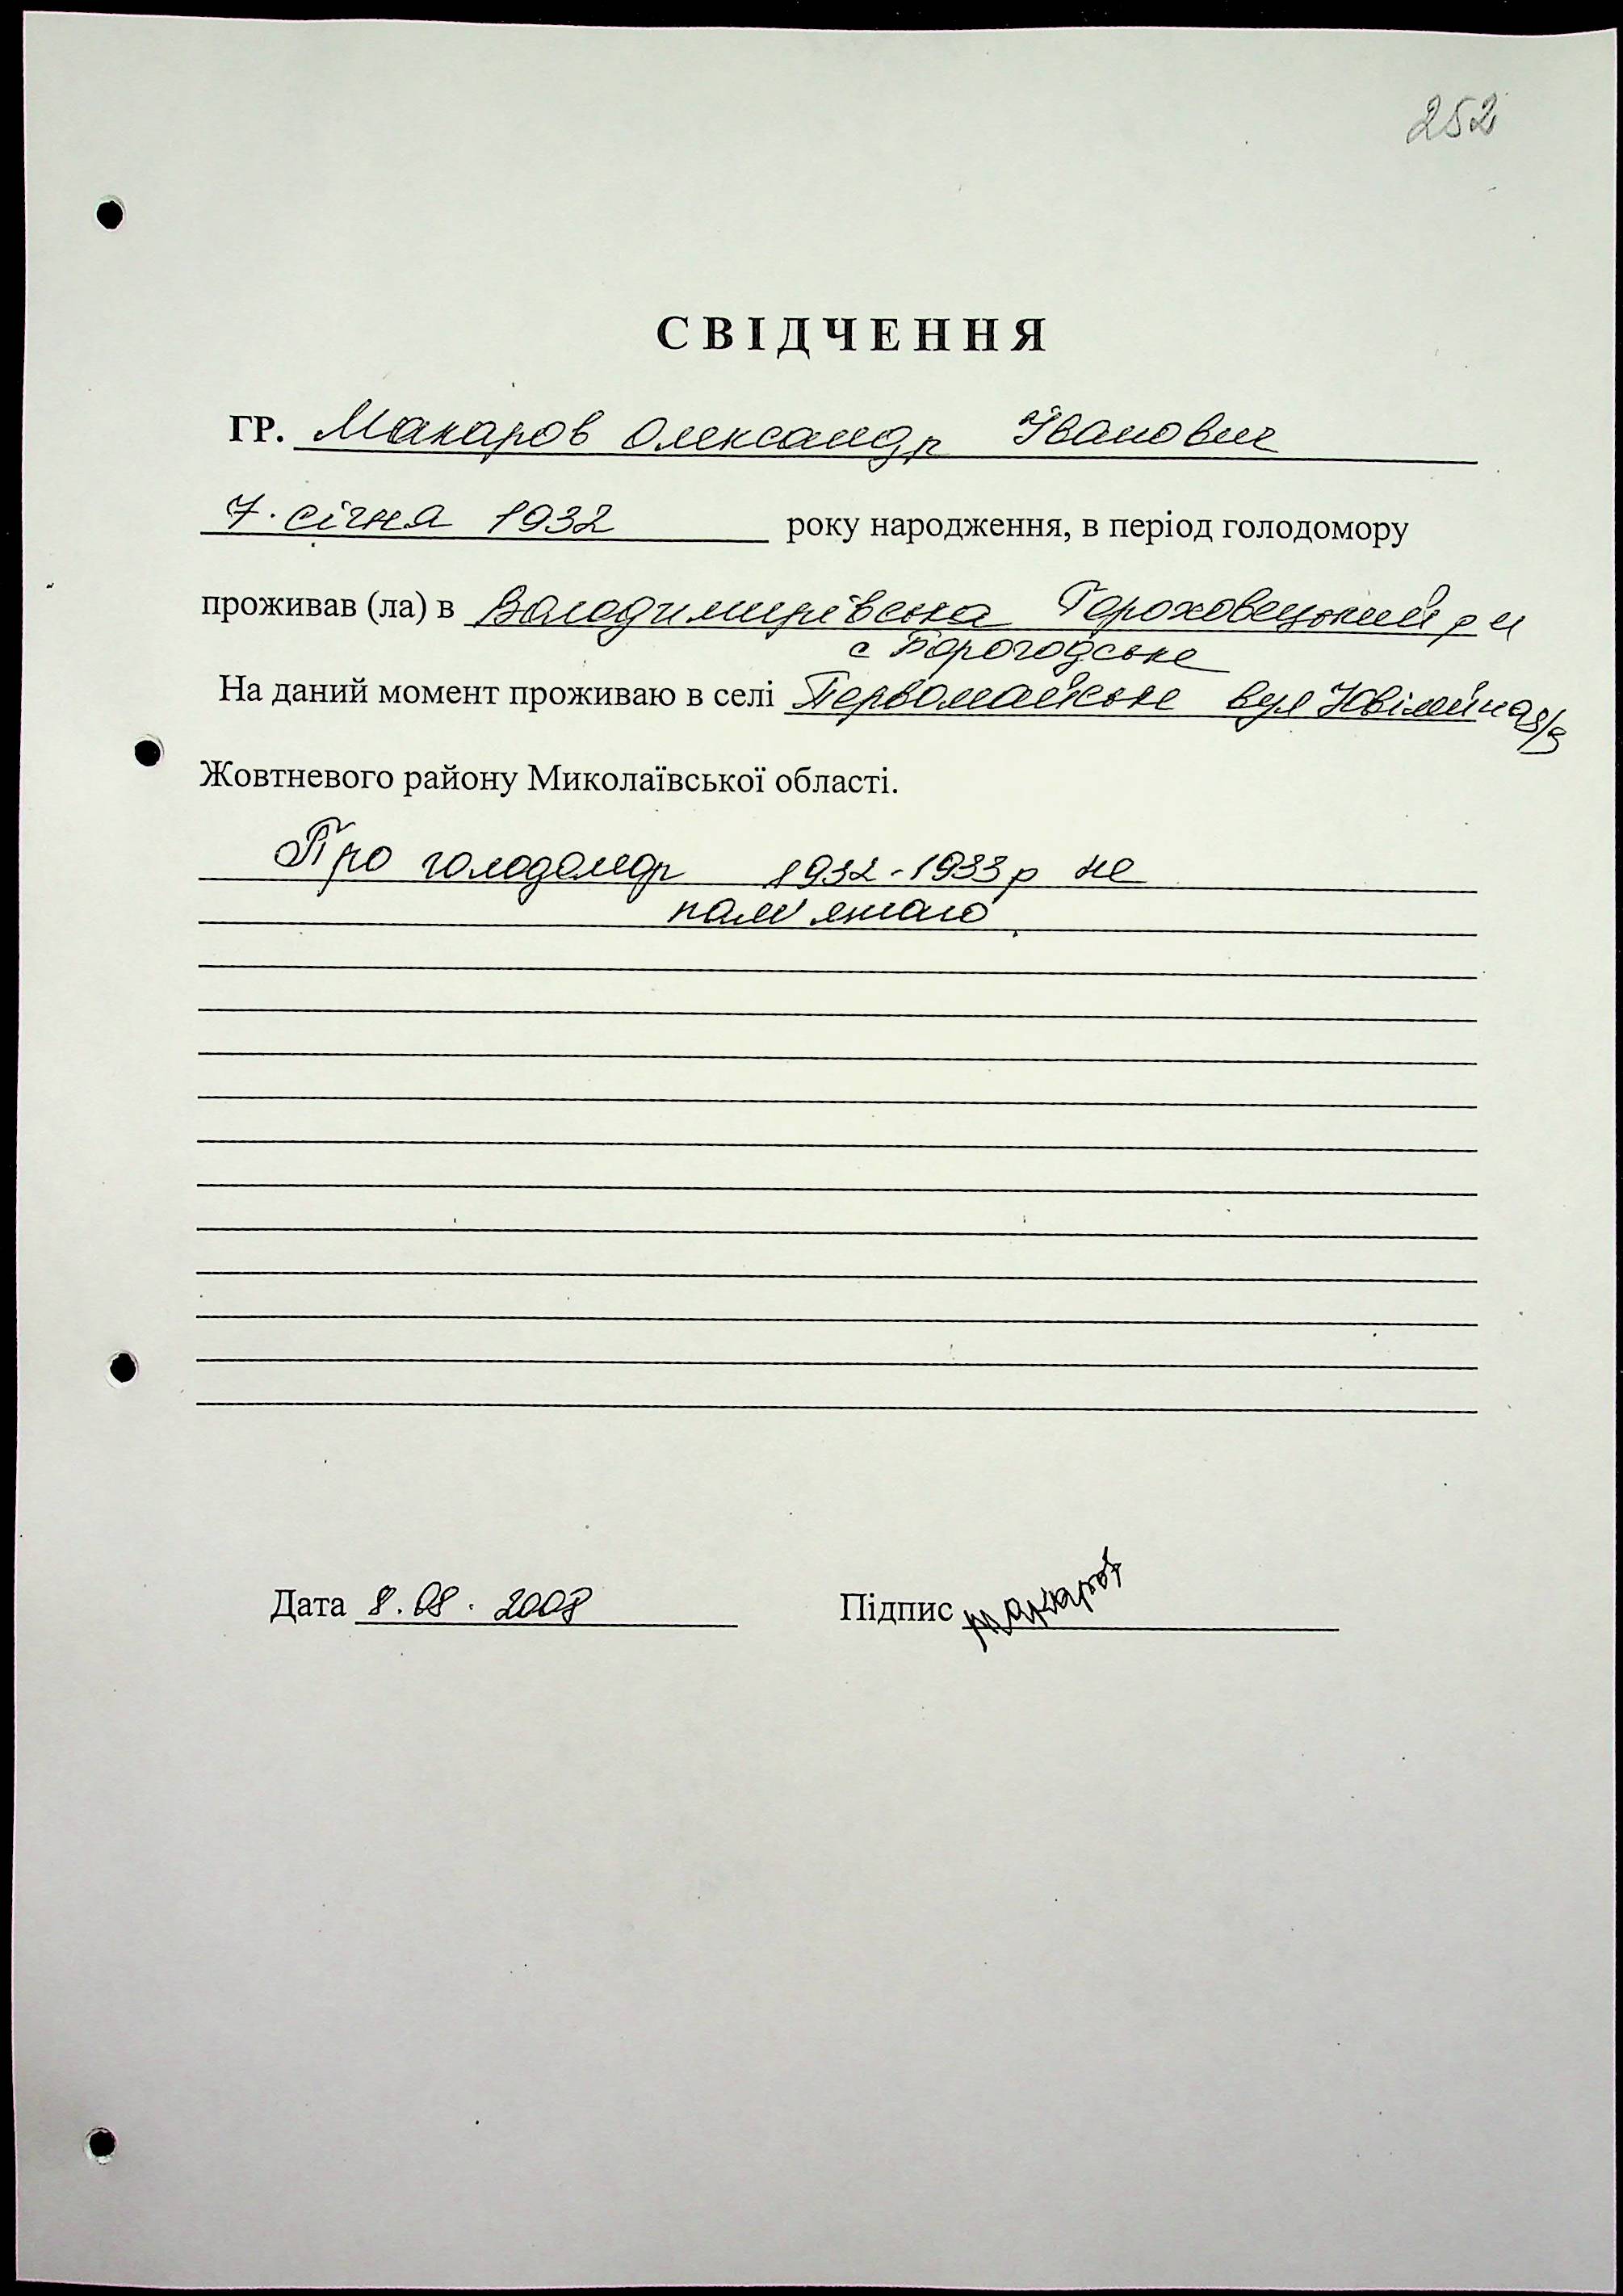 252
СВІДЧЕННЯ
ГР. Макаров Олександр Іванович
7. січня 1932 року народження, в період голодомору
проживав (ла) в Володимирівська Гороховецький р н
с Борогодське
На даний момент проживаю в селі Первомайське вул Ювілейна 8/3
Жовтневого району Миколаївської області.
Про голодомор 1932-1933 р не
пам'ятаю
Дата 8.08.2008 Підпис Макаров